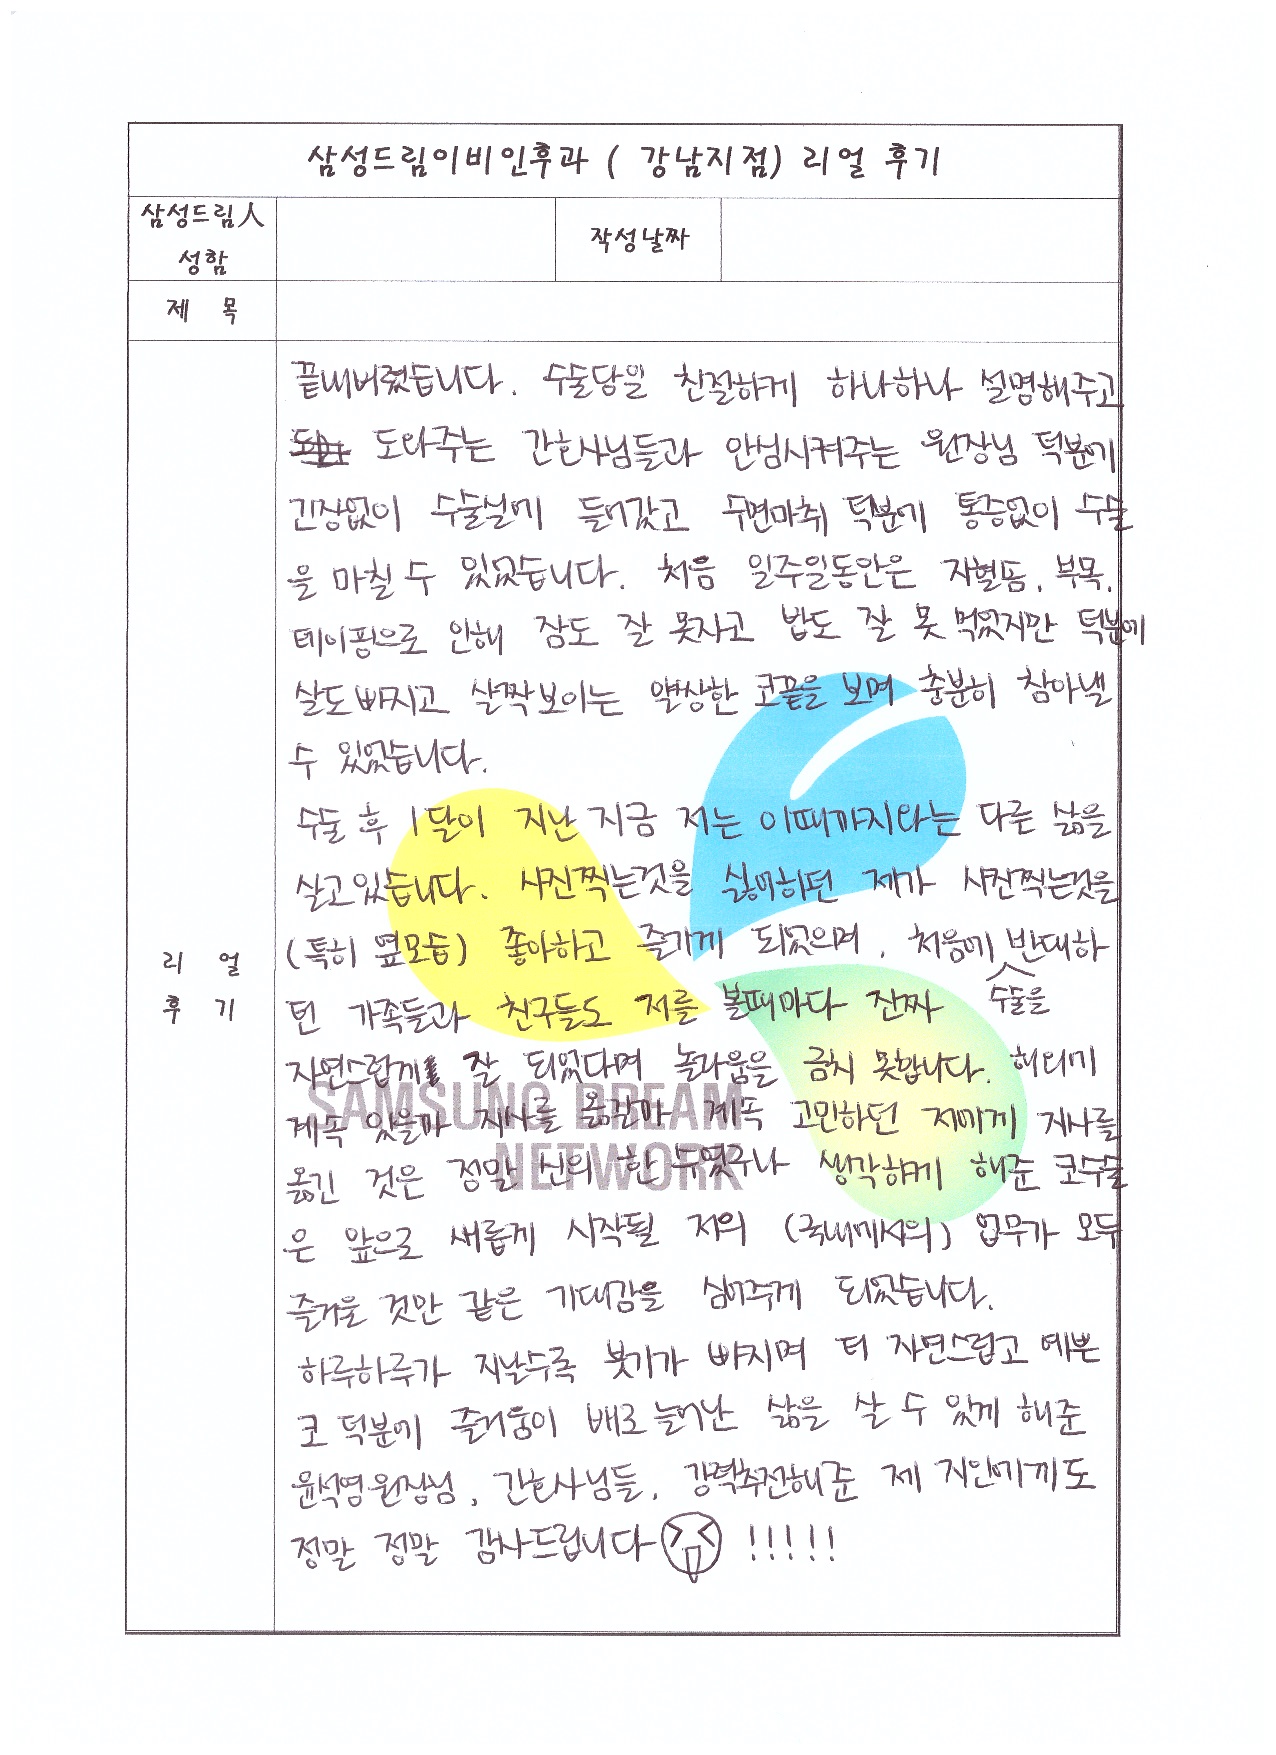 삼성드림이비인후과 ( 강남지점) 리얼 후기
삼성드림人
성함
작성날짜
제 목
끝내버렸습니다. 수술당일 친절하게 하나하나 설명해주고
도와주는 간호사님들과 안심시켜주는 원장님 덕분에
긴장없이 수술실에 들어갔고 수면마취 덕분에 통증없이 수술
을 마칠 수 있었습니다. 처음 일주일동안은 지혈솜, 부목,
테이핑으로 인해 잠도 잘 못자고 밥도 잘 못 먹었지만 덕분에
살도 빠지고 살짝 보이는 얄쌍한 코끝을 보며 충분히 참아낼
수 있었습니다.
수술 후 1달이 지난 지금 저는 이때까지와는 다른 삶을
살고있습니다. 사진찍는것을 싫어하던 제가 사진찍는것을
(특히 옆모습) 좋아하고 즐기게 되었으며, 처음에 수술을 반대하
던 가족들과 친구들도 저를 볼때마다 진짜
자연스럽게 잘 되었다며 놀라움을 금치 못합니다. 해외에
계속 있을까 지사를 옮길까 계속 고민하던 저에게 지사를
옮긴 것은 정말 신의 한 수였구나 생각하게 해준 코수술
은 앞으로 새롭게 시작될 저의 (국내에서의) 업무가 모두
즐거울 것만 같은 기대감을 심어주게 되었습니다.
하루하루가 지날수록 붓기가 빠지며 더 자연스럽고 예쁜
코 덕분에 즐거움이 배로 늘어난 삶을 살 수 있게 해준
윤석영원장님, 간호사님들, 강력추천해준 제 지인에게도
정말 정말 감사드립니다 !!!!!
리 얼
후 기
SAMSUNG DREAM
NETWORK